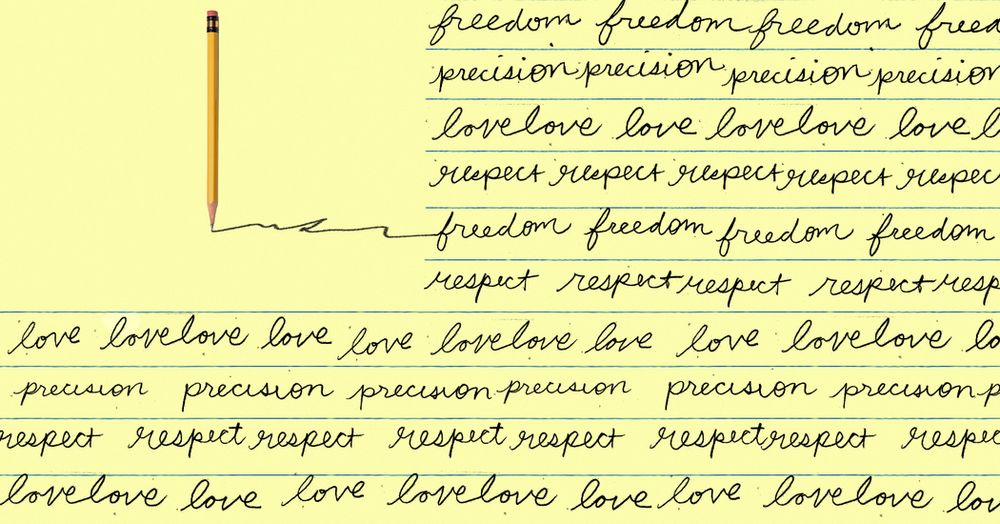 freedom freedom freedom freed
precision precision precision precision
love love love love love love l
respect respect respect respect respec
freedom freedom freedom freedom
respect respect respect respect resp
love love love love love love love love love love love lo
precision precision precision precision precision precision p
respect respect respect respect respect respect respect respec
love love love love love love love love love love lov